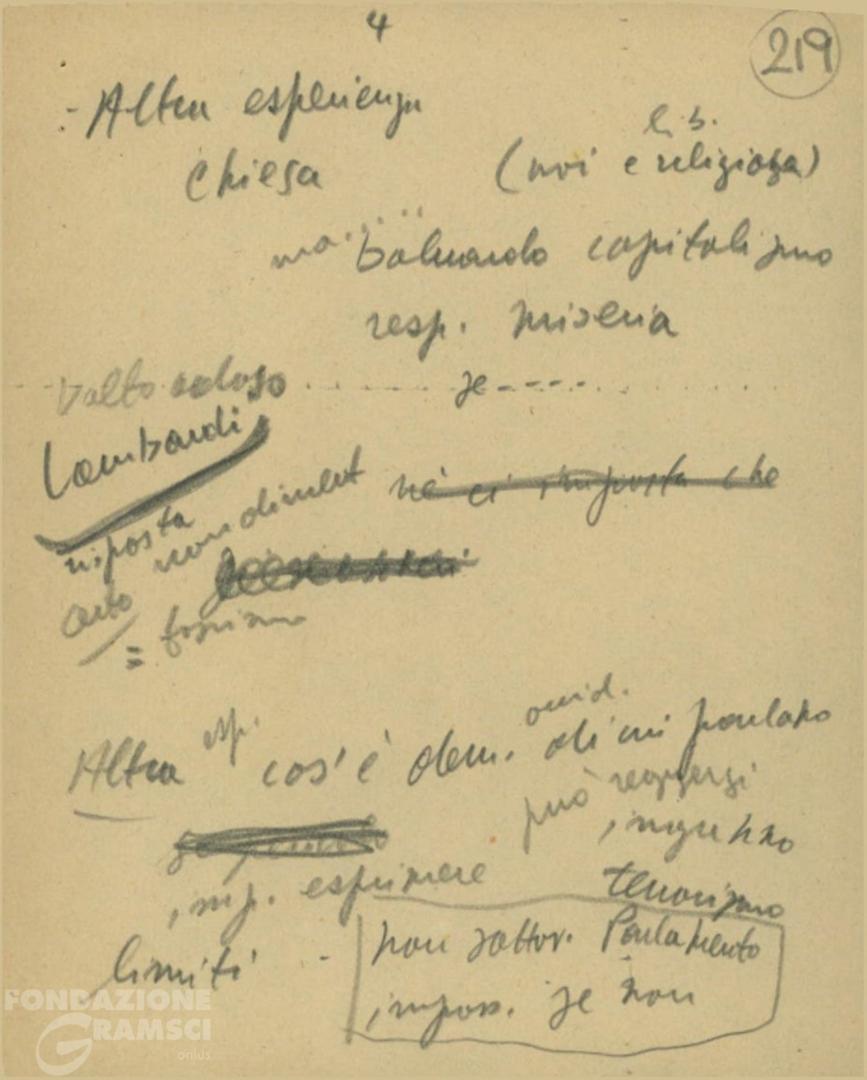 4
219
- Altra esperienza
l. b.
chiesa (noi e religiosa)
ma..... baluardo capitalismo
resp. miseria
Valto
se - - - -
Lombardi
né ci importa che
risposta
non diment
certo
= fascismo
Altra esp. cos'è dem. occid. di cui parlano
può reggersi
ingiustizia
imp. esprimere terrorismo
limiti - non sottov. Parlamento
imposs. se non
FONDAZIONE
GRAMSCI
onlus